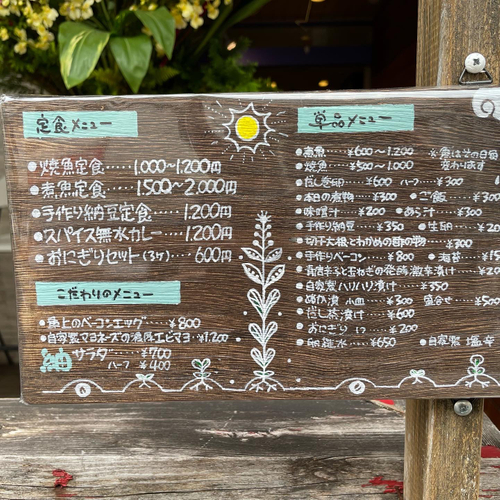 定食メニュー
●焼魚定食‥‥1,000〜1,200円
●煮魚定食‥‥1500〜2,000円
●手作り納豆定食‥‥1,200円
●スパイス無水カレー‥‥1,200円
●おにぎりセット(3ケ)‥‥600円
こだわりのメニュー
●極上のベーコンエッグ‥‥¥800
●自家製マヨネーズの濃厚エビマヨ‥¥1,200
サラダ‥‥¥700
ハーフ ¥400
単品メニュー
●煮魚‥‥¥600〜1,200
●焼魚‥‥¥500〜1,000
※魚はその日毎
変わります
●だし巻卵‥‥¥600 ハーフ‥‥¥300
●本日の煮物‥‥¥300 ●ご飯‥‥¥300
●味噌汁‥‥¥200 ●あら汁‥‥¥300
●手作り納豆‥‥¥350 ●生卵‥‥
●切干大根とわかめの酢の物‥‥¥300
●手作りベーコン‥‥¥800 ●海苔‥‥
●青唐辛子と玉ねぎの発酵激辛漬け‥‥
●自家製ハリハリ漬け‥‥¥350
●ぬか漬 小皿‥‥¥300 盛合せ‥‥
●だし茶漬け‥‥¥600
●おにぎり 1ケ‥‥¥200
●卵雑水‥‥¥650 ●自家製 塩辛